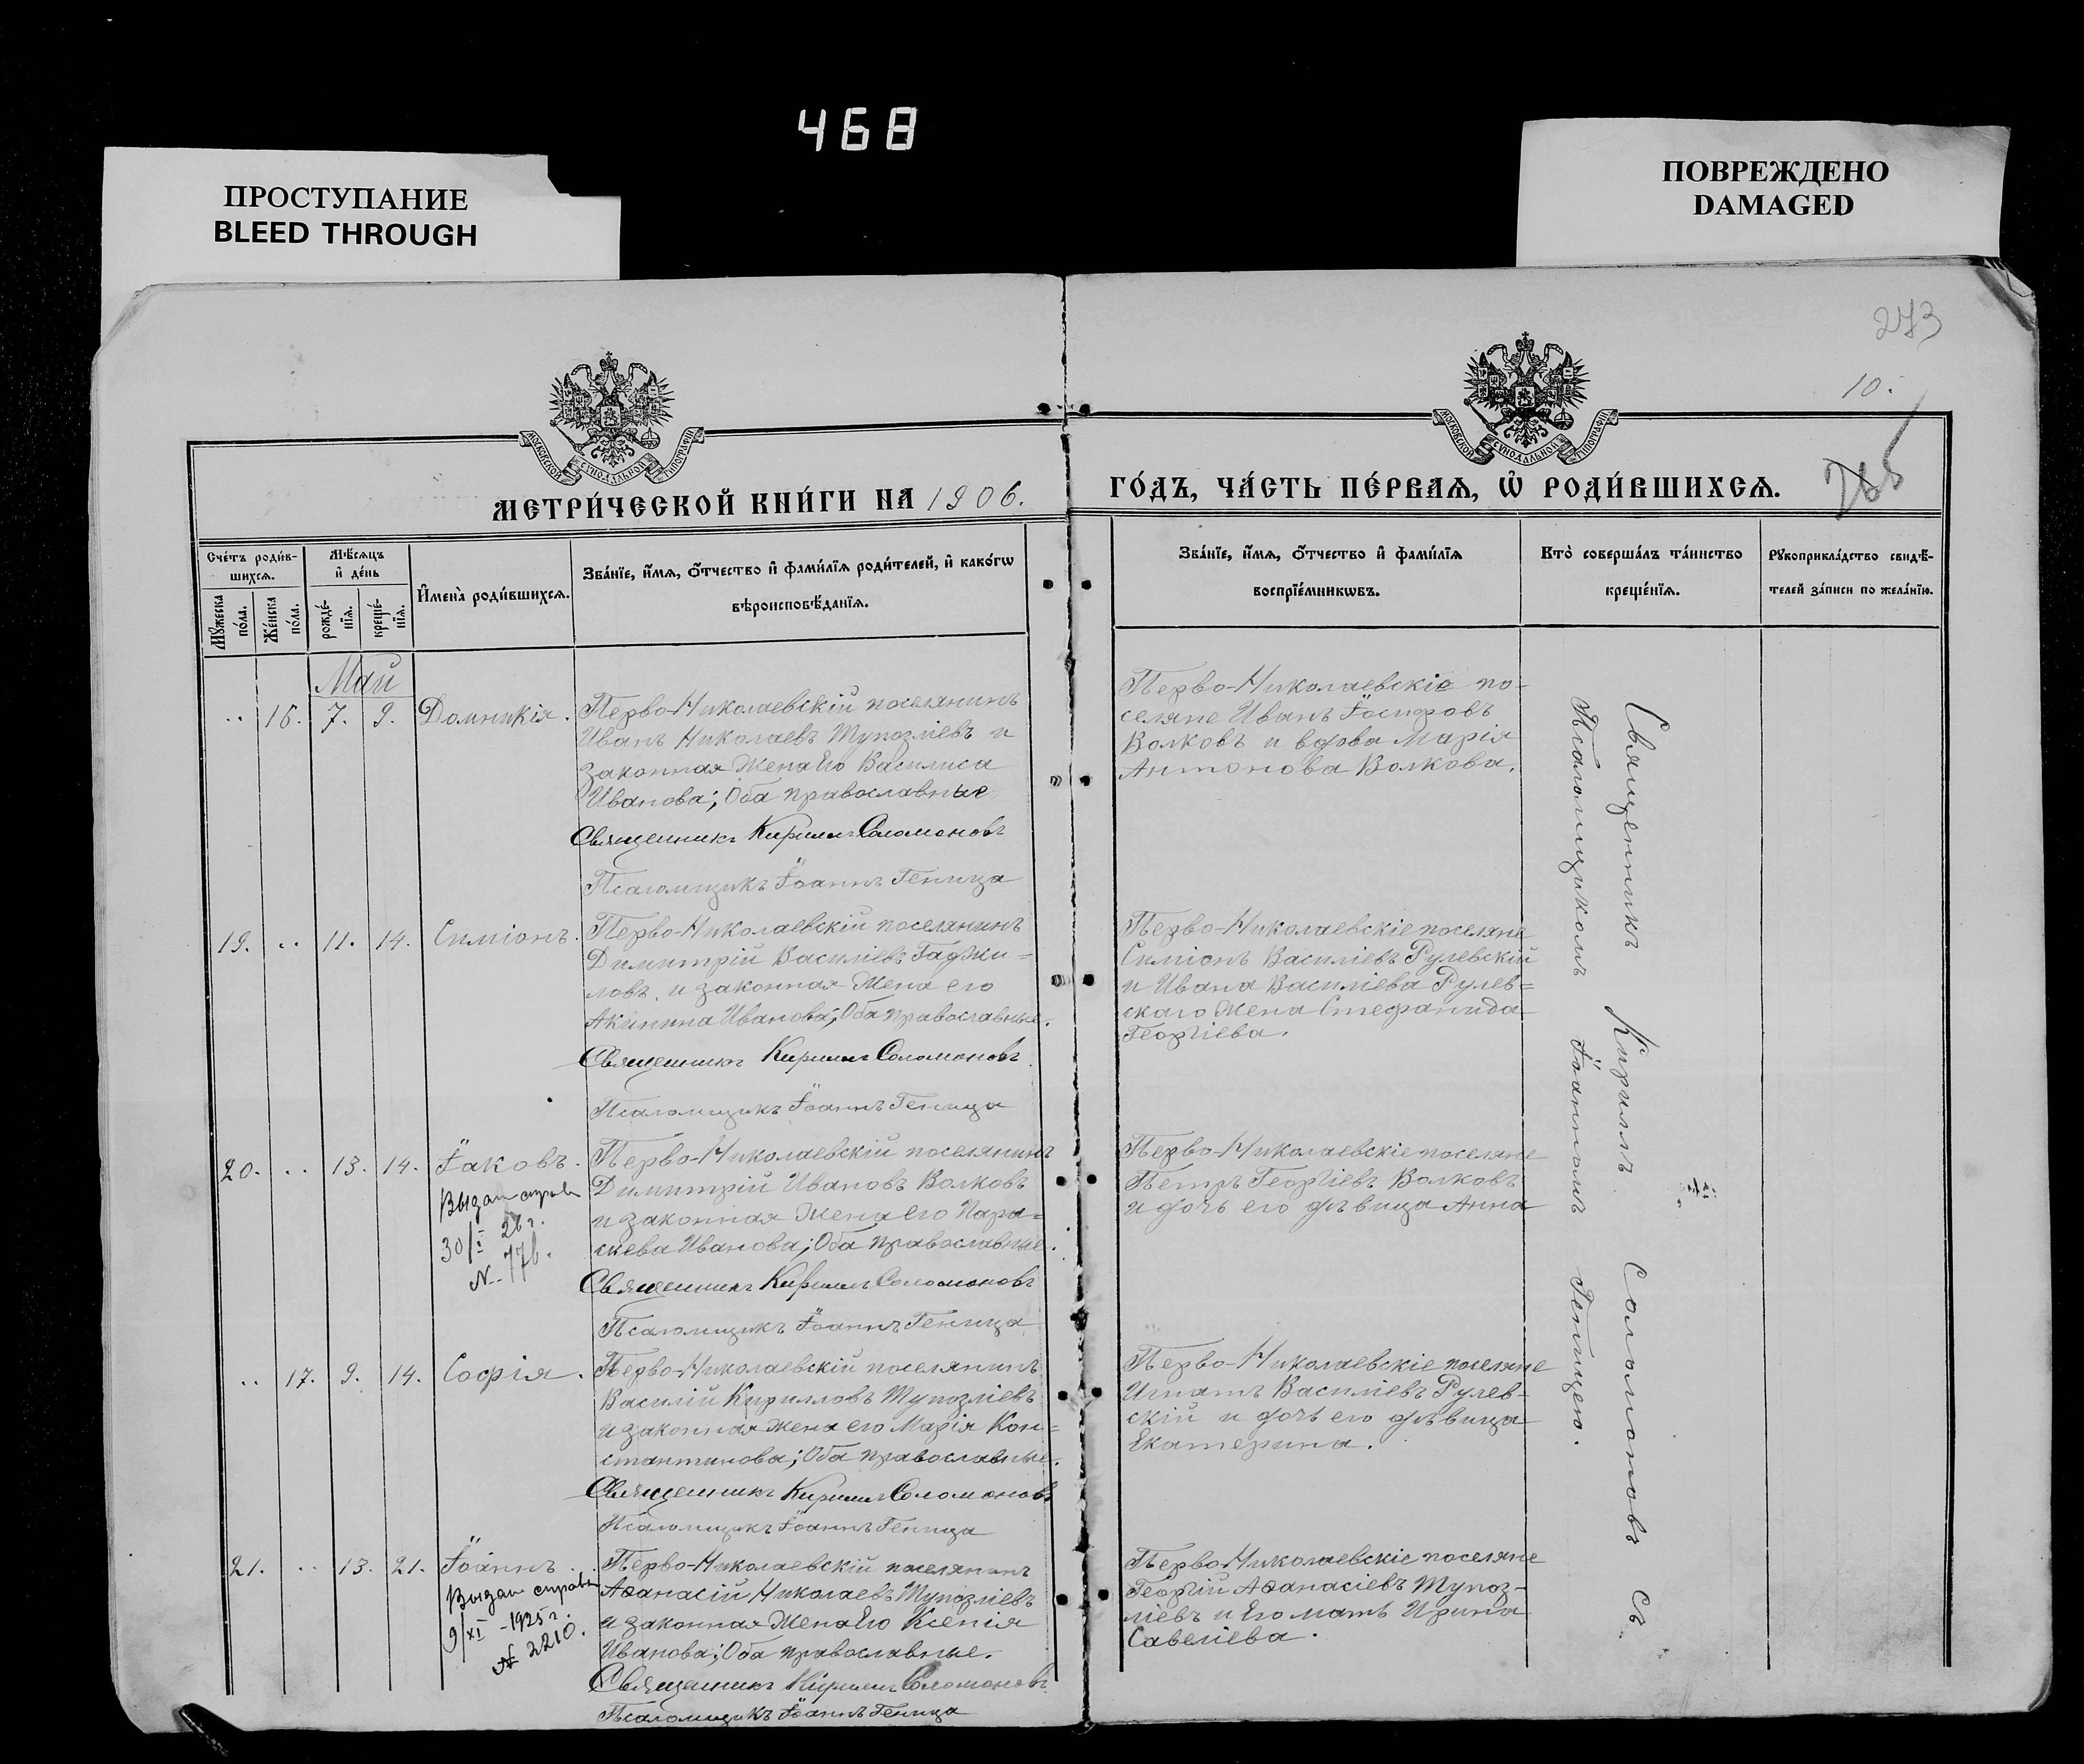 468
ПРОСТУПАНИЕ
BLEED THROUGH
ПОВРЕЖДЕНО
DAMAGED
273
10.
МОСКОВСКОЙ СѴНОДАЛЬНОЙ ТИПОГРАФІИ
МОСКОВСКОЙ СѴНОДАЛЬНОЙ ТИПОГРАФІИ
МЕТРИ́ЧЕСКОЙ КНИ́ГИ НА 1906.
ГО́ДЪ, ЧА́СТЬ ПЕ́РВАѦ, Ѡ҆ РОДИ́ВШИХСѦ.
Сче́тъ роди́в-
шихсѧ.
Мꙋ́жеска
по́ла.
Же́нска
по́ла.
Мѣ́сѧцъ
и҆ де́нь
рожде́-
нїѧ.
креще́-
нїѧ.
И҆мена̀ роди́вшихсѧ.
Зва́нїе, и҆́мѧ, ѻ҆́тчество и҆ фами́лїѧ роди́телей, и҆ како́гѡ
вѣроисповѣ́данїѧ.
Зва́нїе, и҆́мѧ, ѻ҆́тчество и҆ фами́лїѧ
воспрїе́мникѡвъ.
Кто̀ соверша́лъ та́инство
креще́нїѧ.
Рꙋкоприкла́дство свидѣ́-
телей за́писи по жела́нїю.
Май
.. 16. 7. 9. Домникія.
Перво-Николаевскій поселянинъ
Иванъ Николаевъ Тупозліевъ и
законная жена его Василиса
Иванова; Оба православные
Священникъ Кириллъ Соломоновъ
Псаломщикъ Іоаннъ Геница
Перво-Николаевскіе по-
селяне Иванъ Іосифовъ
Волковъ и вдова Марія
Антонова Волкова.
19. .. 11. 14. Симіонъ.
Перво-Николаевскій поселянинъ
Димитрій Василіевъ Гаджи-
ловъ и законная жена его
Акилина Иванова; Оба православные.
Священникъ Кириллъ Соломоновъ
Псаломщикъ Іоаннъ Геница
Перво-Николаевскіе поселяне
Симіонъ Василіевъ Рулевскій
и Ивана Василіева Рулев=
скаго жена Стефанида
Георгіева.
20. .. 13. 14. Іаковъ.
Выдан справ
30/I 26 г.
N. 776.
Перво-Николаевскій поселянинъ
Димитрій Ивановъ Волковъ
и законная жена его Пара=
скева Иванова; Оба православные.
Священникъ Кириллъ Соломоновъ
Псаломщикъ Іоаннъ Геница
Перво-Николаевскіе поселяне
Петръ Георгіевъ Волковъ
и дочь его дѣвица Анна
.. 17. 9. 14. Софія.
Перво-Николаевскій поселянинъ
Василій Кирилловъ Тупозліевъ
и законная жена его Марія Кон=
стантинова; Оба православные.
Священникъ Кириллъ Соломоновъ
Псаломщикъ Іоаннъ Геница
Перво-Николаевскіе поселяне
Игнатъ Василіевъ Рулев-
скій и дочь его дѣвица
Екатерина.
21. .. 13. 21. Іоаннъ.
Выдан справ
9/XI - 1925 г.
N 2210.
Перво-Николаевскій поселянинъ
Аѳанасій Николаевъ Тупозліевъ
и законная жена его Ксенія
Иванова; Оба православные.
Священникъ Кириллъ Соломоновъ
Псаломщикъ Іоаннъ Геница
Перво-Николаевскіе поселяне
Георгій Аѳанасіевъ Тупоз-
ліевъ и его мать Ирина
Савеліева.
Священникъ Кириллъ Соломоновъ съ
Псаломщикомъ Іоанномъ Геницею.